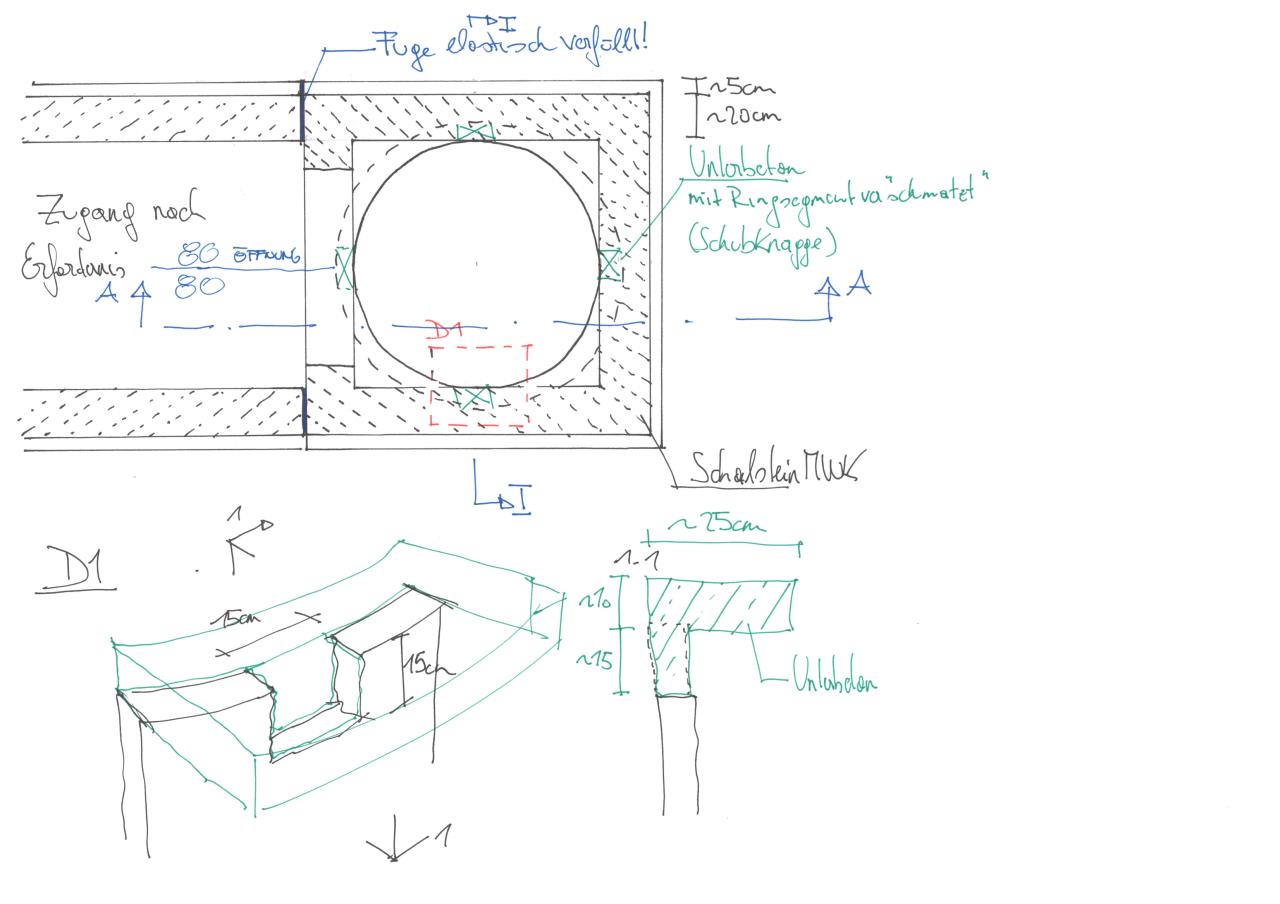 I
Fuge elastisch verfüllt!
~5cm
~20cm
Unterbeton
mit Ringsegment va"schmatzt"
(Schubknagge)
Zugang nach
Erfordanis
80 ÖFFNUNG
80
A
A
D1
Schalstein MWK
I
D1
1
15cm
15cm
1
~25cm
1-1
~10
~15
Unterbeton